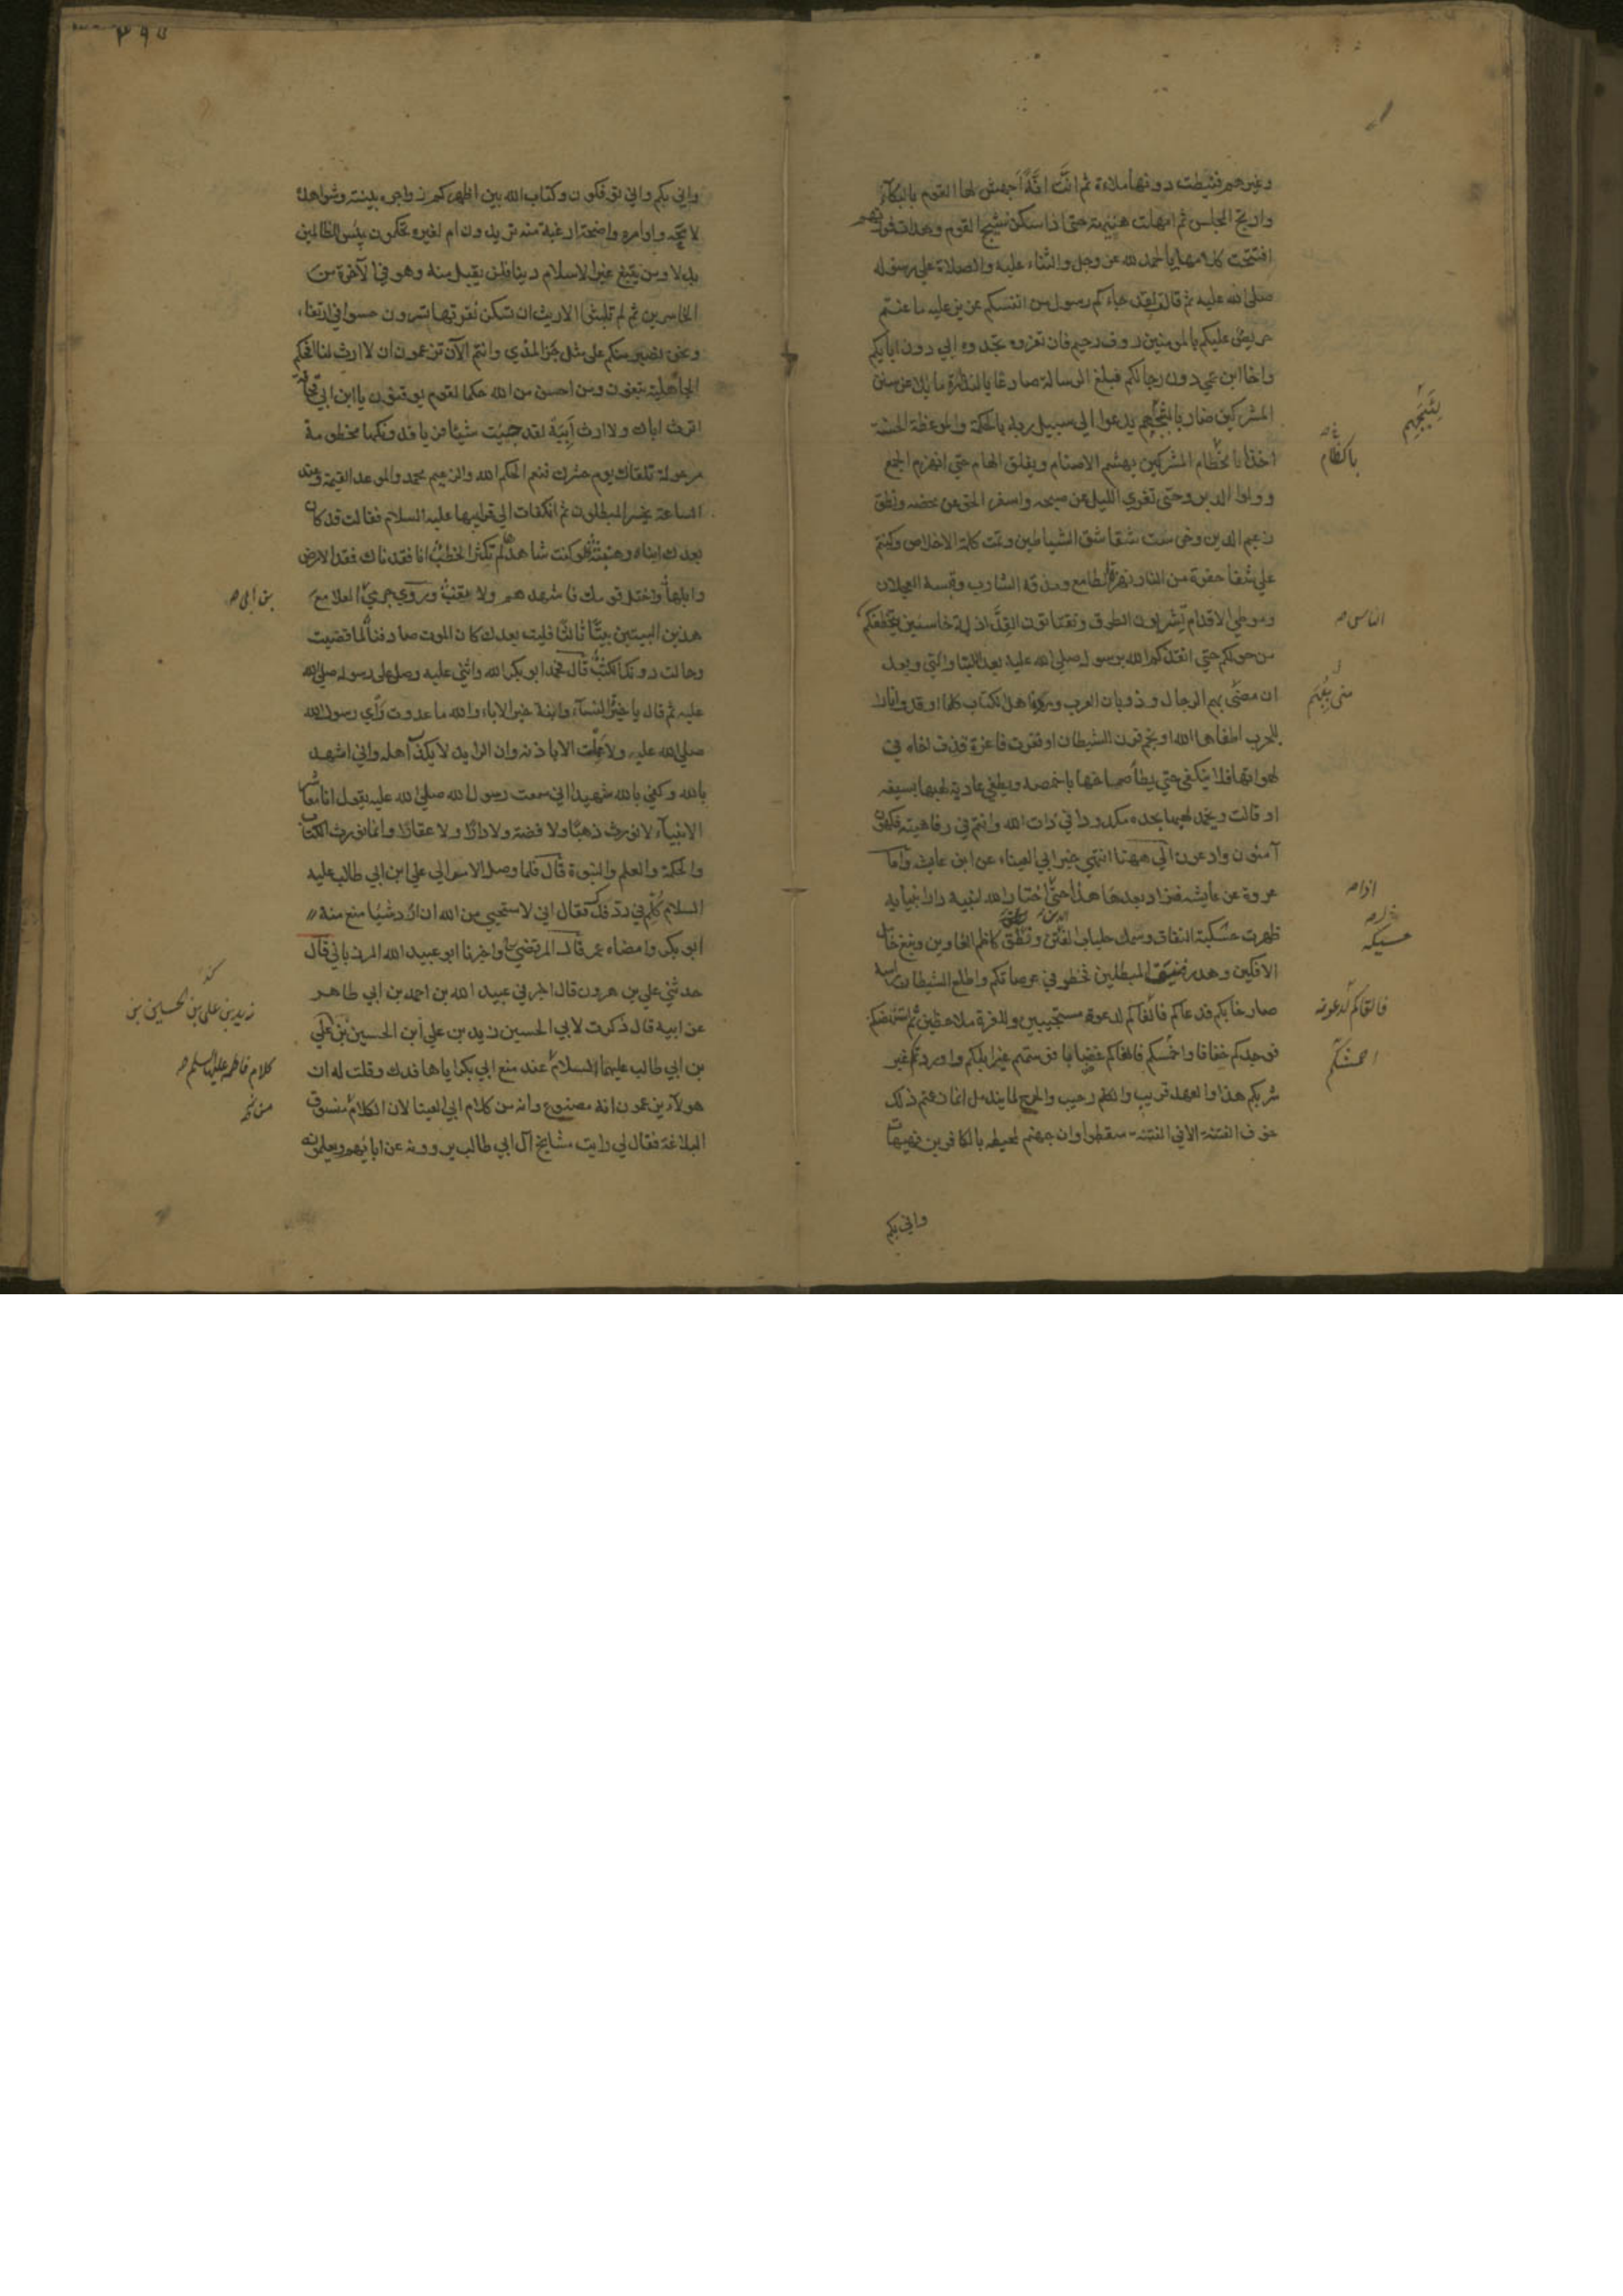 وغيرهم فنيطت دونها ملاءة ثم انت انة اجهش لها القوم بالبكاء
وارتج المجلس ثم امهلت هنيهة حتى اذا سكن نشيج القوم وهدات فورتهم
افتتحت كلامها بالحمد لله عز وجل والثناء عليه والصلاة علي رسوله
صلى الله عليه ثم قالت لقد جاءكم رسول من انفسكم عزيز عليه ما عنتم
حريص عليكم بالمومنين روف رحيم فان تعزوه تجدوه ابي دون ابايكم
واخا ابن عمي دون رجالكم فبلغ الرسالة صادعا بالنذارة مايلا عن سنن
المشركين ضاربا لثبجهم يدعوا الي سبيل ربه بالحكمة والموعظة الحسنة
اخذا باكظام المشركين يهشم الاصنام ويفلق الهام حتي انهزم الجمع
وولوا الدبر وحتى تفري الليل عن صبحه واسفر الحق عن محضه ونطق
زعيم الدين وخرست شقاشق الشياطين وتمت كلمة الاخلاص وكنتم
علي شفا حفرة من النار نهزة الطامع ومذقة الشارب وقبسة العجلان
وموطي الاقدام تشربون الطرق وتقتاتون القد اذلة خاسئين يتخطفكم
من حولكم حتي انقذكم الله برسوله صلي الله عليه بعد اللتيا والتي وبعد
ان مني ببهم الرجال وذوبان العرب ومردة اهل الكتاب كلما اوقدوا نارا
للحرب اطفاها الله او نجم قرن الشيطان او فغرت فاغرة قذف اخاه في
لهواتها فلا ينكفي حتي يطأ صماخها باخمصه ويطفي عادية لهبها بسيفه
او قالت ويخمد لهبها بحده مكدودا في ذات الله وانتم في رفاهية فكهون
آمنون وادعون الي ههنا انتهي خبر ابي العيناء عن ابن عايشة واما
عروة عن عايشة فزاد بعد هذا حتي اختار الله لنبيه دار انبيايه
ظهرت حسيكة النفاق وسمل جلباب الدين ونطق كاظم الغاوين ونبغ خامل
الافكين وهدر فنيق المبطلين فخطر في عرصاتكم واطلع الشيطان راسه
صارخا بكم فدعاكم فالفاكم لدعوته مستجيبين وللغرة ملاحظين ثم استنهضكم
فوجدكم خفافا واحمشكم فالفاكم غضابا فوسمتم غير ابلكم واوردتم غير
شربكم هذا والعهد قريب والكلم رحيب والجرح لما يندمل انما زعمتم ذلك
خوف الفتنة الا في الفتنة سقطوا وان جهنم لمحيطة بالكافرين فهيهات
واني بكم
لثبجهم
باكظام
الناس ص
مني ببهم
اذا ص
حسيكة
فالفاكم لدعوته
احمشكم
واني بكم واني توفكون وكتاب الله بين اظهركم زواجره بينة وشواهده
لايحة واوامره واضحة ارغبة عنه تريدون ام لغيره تحكمون بئس للظالمين
بدلا ومن يبتغ غير الاسلام دينا فلن يقبل منه وهو في الآخرة من
الخاسرين ثم لم تلبثوا الا ريث ان تسكن نفرتها تسرون حسوا في ارتغاء
ونحن نصبر منكم علي مثل حز المدي وانتم الآن تزعمون ان لا ارث لنا افحكم
الجاهلية تبغون ومن احسن من الله حكما لقوم يوقنون يا ابن ابي قحافة
اترث اباك ولا ارث ابيه لقد جيت شيئا فريا فدونكها مخطومة
مرحولة تلقاك يوم حشرك فنعم الحكم الله والزعيم محمد والموعد القيمة وعند
الساعة يخسر المبطلون ثم انكفات الي قبر ابيها عليه السلام فقالت قد كان
بعدك انباء وهنبثة لو كنت شاهدها لم تكثر الخطب انا فقدناك فقد الارض
وابلها واختل قومك فاشهدهم ولا تغب وروي حرمي العلا مع
هذين البيتين بيتا ثالثا فليت بعدك كان الموت صادفنا لما قضيت
وحالت دونك الكثب قال فحمد ابو بكر الله واثني عليه وصلي علي رسوله صلي الله
عليه ثم قال يا خير النساء وابنة خير الاباء والله ما عدوت راي رسول الله
صلي الله عليه ولا عملت الا باذنه وان الرايد لا يكذب اهله واني اشهد
بالله وكفي بالله شهيدا اني سمعت رسول الله صلي الله عليه يقول انا معاشر
الانبياء لا نورث ذهبا ولا فضة ولا دارا ولا عقارا وانما نورث الكتاب
والحكمة والعلم والنبوة قال فلما وصل الامر الي علي ابن ابي طالب عليه
السلام كلم في رد فدك فقال اني لاستحيي من الله ان ارد شيئا منع منه
ابو بكر وامضاه عمر قال المرتضي واخبرنا ابو عبيد الله المرزباني قال
حدثني علي بن هرون قال اخبرني عبيد الله بن احمد بن ابي طاهر
عن ابيه قال ذكرت لابي الحسين زيد بن علي ابن الحسين بن علي
بن ابي طالب عليهما السلام عند منع ابي بكر اياها فدك وقلت له ان
هولاء يزعمون انه مصنوع وانه من كلام ابي العينا لان الكلام منسوق
البلاغة فقال لي رايت مشايخ آل ابي طالب يروونه عن ابائهم ويعلمونه
زيد بن علي بن الحسين بن
كلام فاطمة عليها السلام ص